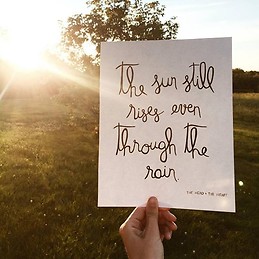 the sun still
rises even
through the
rain.
THE HEAD + THE HEART